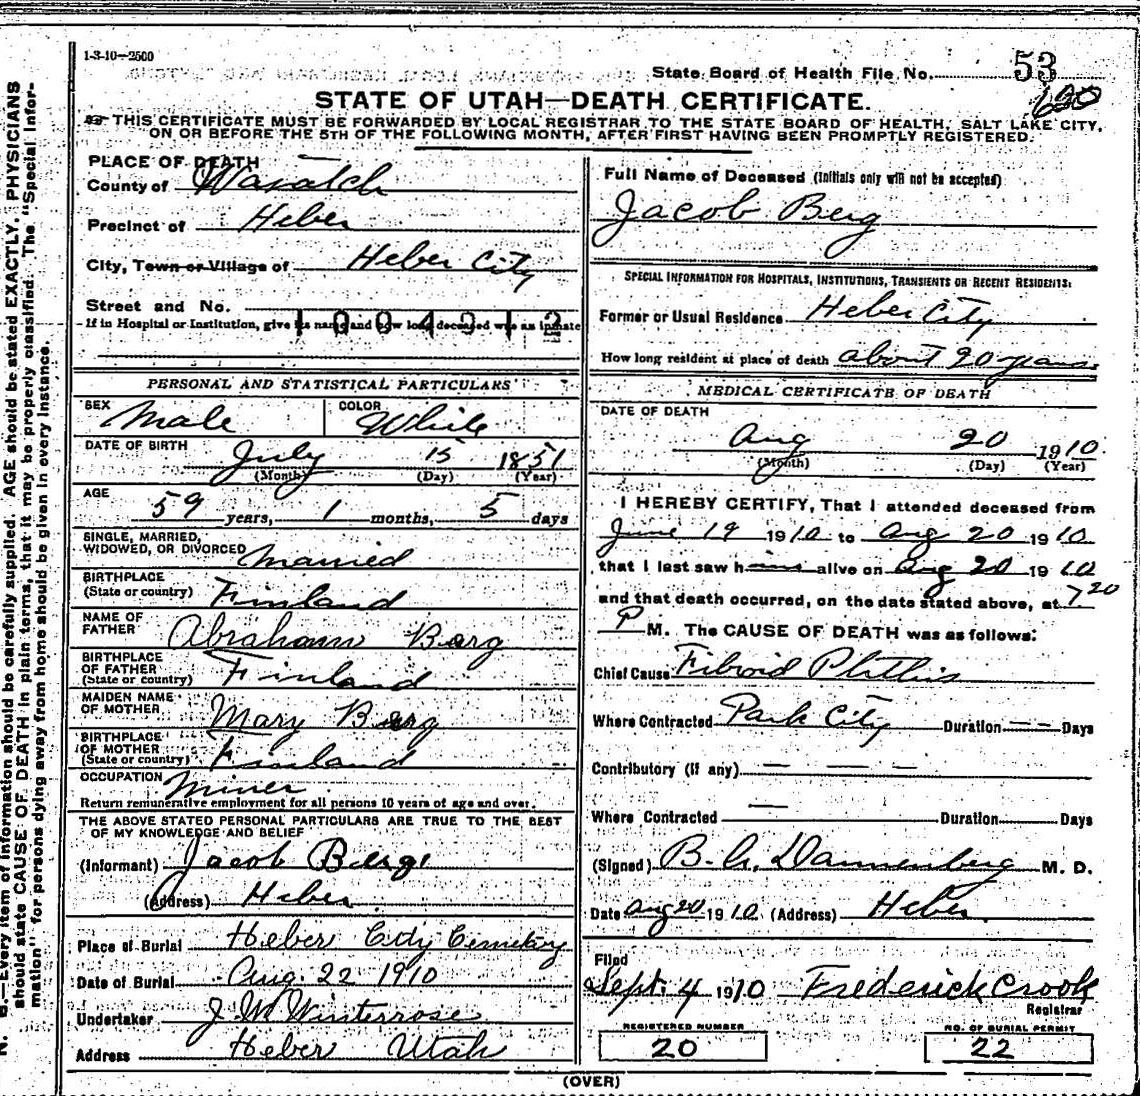 1-3-10—2500
State Board of Health File No. 53
STATE OF UTAH—DEATH CERTIFICATE.
THIS CERTIFICATE MUST BE FORWARDED BY LOCAL REGISTRAR TO THE STATE BOARD OF HEALTH, SALT LAKE CITY,
ON OR BEFORE THE 5TH OF THE FOLLOWING MONTH, AFTER FIRST HAVING BEEN PROMPTLY REGISTERED.
PLACE OF DEATH
County of Wasatch
Precinct of Heber
City, Town or Village of Heber City
Street and No.
If in Hospital or Institution, give its name and how long deceased was an inmate
PERSONAL AND STATISTICAL PARTICULARS
SEX Male COLOR White
DATE OF BIRTH July 15 1851
(Month) (Day) (Year)
AGE 59 years, 1 months, 5 days
SINGLE, MARRIED,
WIDOWED, OR DIVORCED Married
BIRTHPLACE
(State or country) Finland
NAME OF
FATHER Abraham Berg
BIRTHPLACE
OF FATHER
(State or country) Finland
MAIDEN NAME
OF MOTHER Mary Berg
BIRTHPLACE
OF MOTHER
(State or country) Finland
OCCUPATION Miner
Return remunerative employment for all persons 10 years of age and over.
THE ABOVE STATED PERSONAL PARTICULARS ARE TRUE TO THE BEST
OF MY KNOWLEDGE AND BELIEF
(Informant) Jacob Berg
(Address) Heber
Place of Burial Heber City Cemetery
Date of Burial Aug. 22 1910
Undertaker J W Winterrose
Address Heber Utah
Full Name of Deceased (Initials only will not be accepted)
Jacob Berg
SPECIAL INFORMATION FOR HOSPITALS, INSTITUTIONS, TRANSIENTS OR RECENT RESIDENTS:
Former or Usual Residence Heber City
How long resident at place of death about 20 years
MEDICAL CERTIFICATE OF DEATH
DATE OF DEATH
Aug 20 1910
(Month) (Day) (Year)
I HEREBY CERTIFY, That I attended deceased from
June 19 1910 to Aug 20 1910
that I last saw him alive on Aug 20 1910
and that death occurred, on the date stated above, at 7 20
P M. The CAUSE OF DEATH was as follows:
Chief Cause Fibroid Phthisis
Where Contracted Park City Duration — — Days
Contributory (if any) — — — —
Where Contracted — Duration Days
(Signed) Dannenberg M. D.
Date Aug 20 1910 (Address) Heber
Filed
Sept. 4 1910 Frederick Crook
Registrar
REGISTERED NUMBER
20
NO. OF BURIAL PERMIT
22
(OVER)
B.—Every item of information should be carefully supplied. AGE should be stated EXACTLY. PHYSICIANS
should state CAUSE OF DEATH in plain terms, that it may be properly classified. The "Special Infor-
mation" for persons dying away from home should be given in every instance.